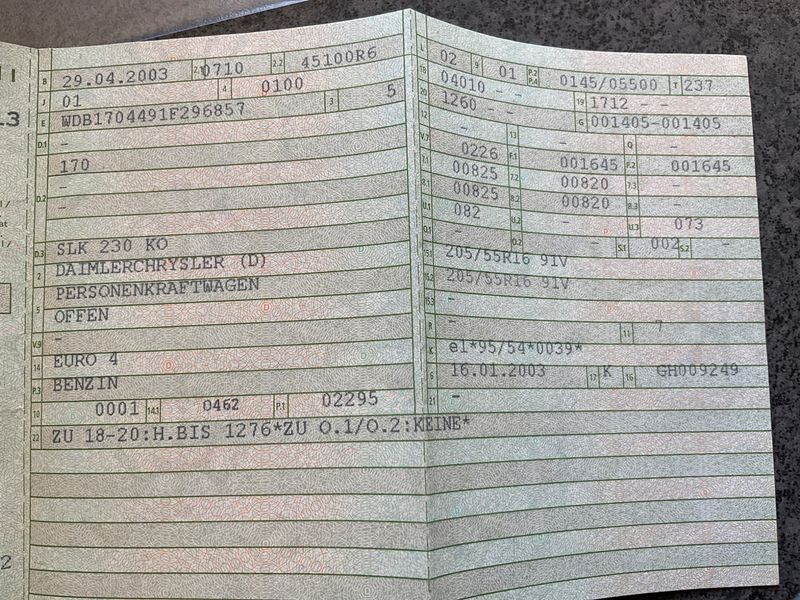 B 29.04.2003 2.1 0710 2.2 45100R6
J 01 4 0100
E WDB1704491F296857 3 5
D.1 -
170
D.2 -
-
D.3 SLK 230 KO
2 DAIMLERCHRYSLER (D)
5 PERSONENKRAFTWAGEN
OFFEN
V.9 -
14 EURO 4
P.3 BENZIN
10 0001 14.1 0462 P.1 02295
22 ZU 18-20:H.BIS 1276*ZU O.1/O.2:KEINE*
L 02 9 01 P.2 P.4 0145/05500 T 237
18 04010 - - 19 1712 - -
20 1260 - - G 001405-001405
12 - 13 - Q -
V.7 0226 F.1 001645 F.2 001645
7.1 00825 7.2 00820 7.3 -
8.1 00825 8.2 00820 8.3 -
U.1 082 U.2 - U.3 073
O.1 - O.2 - S.1 002 S.2 -
15.1 205/55R16 91V
15.2 205/55R16 91V
15.3 -
R - 11 7
K e1*95/54*0039*
6 16.01.2003 17 K 16 GH009249
21 -